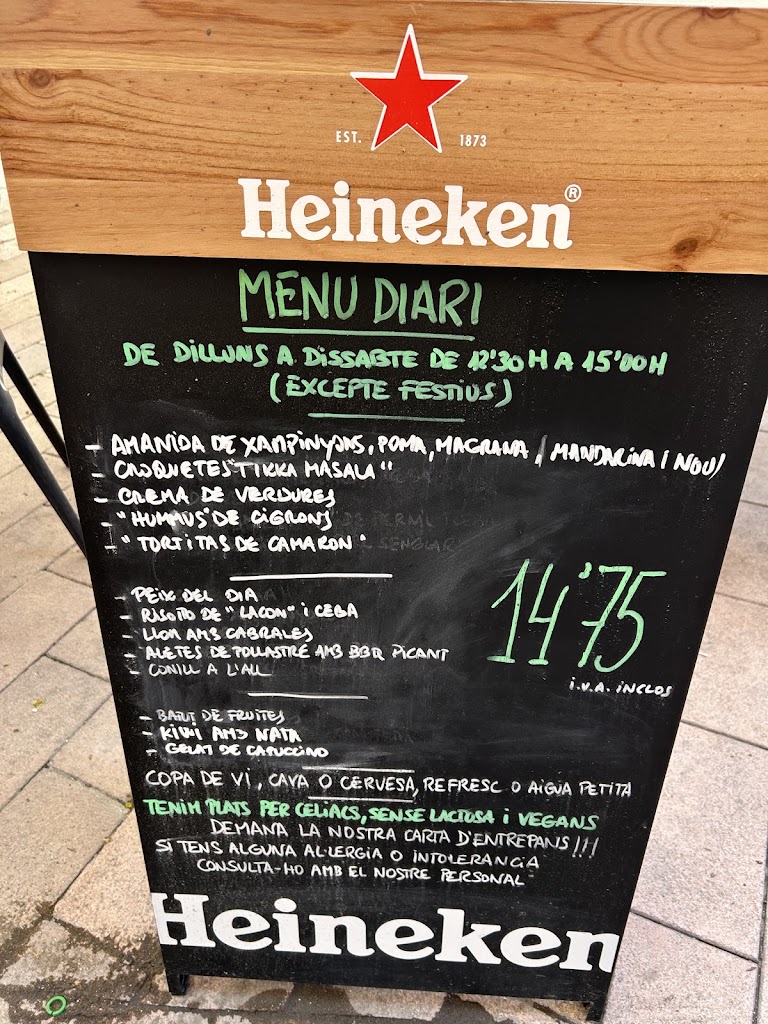 EST. 1873
Heineken®
MENU DIARI
DE DILLUNS A DISSABTE DE 12'30H A 15'00H
(EXCEPTE FESTIUS)
- AMANIDA DE XAMPINYONS, POMA, MAGRANA, MANDARINA I NOUS
- CROQUETES "TIKKA MASALA"
- CREMA DE VERDURES
- "HUMMUS" DE CIGRONS
- "TORTITAS DE CAMARON"
- PEIX DEL DIA
- RISOTTO DE "LACON" I CEBA
- LLOM AMB CABRALES
- ALETES DE POLLASTRE AMB BBQ PICANT
- CONILL A L'ALL
14'75
I.V.A. INCLOS
- BATUT DE FRUITES
- KIWI AMB NATA
- GELAT DE CAPUCCINO
COPA DE VI, CAVA O CERVESA, REFRESC O AIGUA PETITA
TENIM PLATS PER CELIACS, SENSE LACTOSA I VEGANS
DEMANA LA NOSTRA CARTA D'ENTREPANS!!!
SI TENS ALGUNA AL·LERGIA O INTOLERANCIA
CONSULTA-HO AMB EL NOSTRE PERSONAL
Heineken